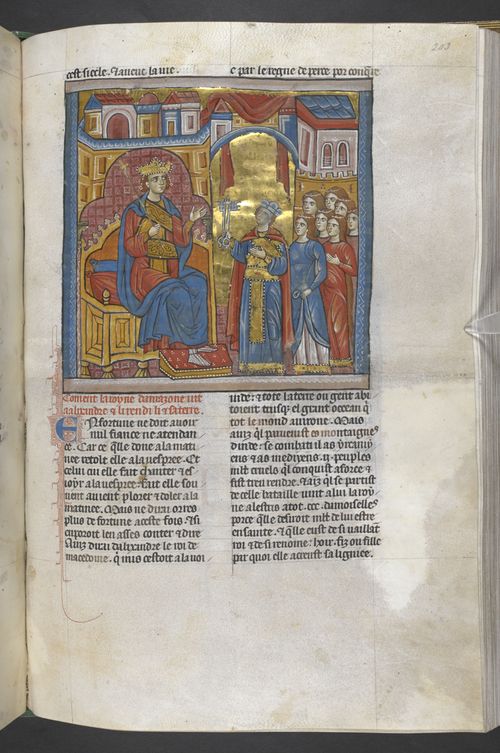 203
cest siecle. & aueuc la uie.
c par le regne de perce por conque
Coment la royne damazone uit
a alixandre & li rendi li & sa terre.
EN fortune ne doit auoir
nul fiance ne atendan
ce. Car ce q̄lle done a la mati
nee retolt elle a la uespree. Et
celui cui elle fait chanter & es
ioyr a la uespree. fait elle sou
uent auient plorer & doler a la
matinee. Mais ne dirai ores
plus de fortune aceste fois. & si
en poroit len asses conter & dire
Ainz dirai dalixandre le roi de
macedoine. q̄ mis cestoit a la uoi
uide. & tote la terre ou gent abi
toient
grant occean q̄
tot le mond auirone. Mais
ainz q̄l paruenist es montaignes
dinde. se combati il as
& as
.ij. peuples
mlt cruels q̄l conquist a force &
fist treu rendre. & ainz q̄l se partist
de celle bataille uint a lui la roy
ne alestris atot .ccc. damoiselles
porce q̄lle desiroit mlt de lui estre
ensainte. & q̄lle eust de si uaillāt
roi & de si renome. hoir. fiz ou fille
par quoi elle acreust sa lignie.